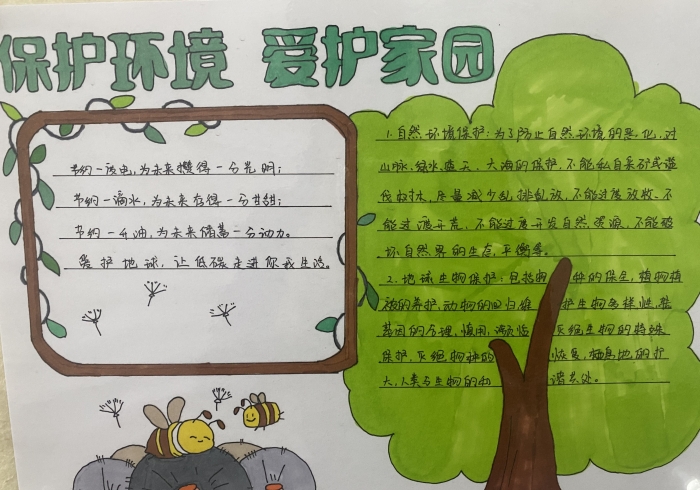 保护环境 爱护家园
节约一度电,为未来攒得一分光明;
节约一滴水,为未来存得一分甘甜;
节约一升油,为未来储蓄一分动力。
爱护地球,让低碳走进你我生活。
1.自然环境保护:为了防止自然环境的恶化,对
山脉、绿水、蓝天、大海的保护,不能私自采矿或滥
伐树木,尽量减少乱排乱放,不能过度放牧、不
能过度开荒、不能过度开发自然资源、不能破
坏自然界的生态平衡等。
2.地球生物保护:包括物种的保全,植物植
被的养护,动物的回归,维护生物多样性,转
基因的合理、慎用,濒临灭绝生物的特殊
保护,灭绝物种的恢复,栖息地的扩
大,人类与生物的和谐共处。